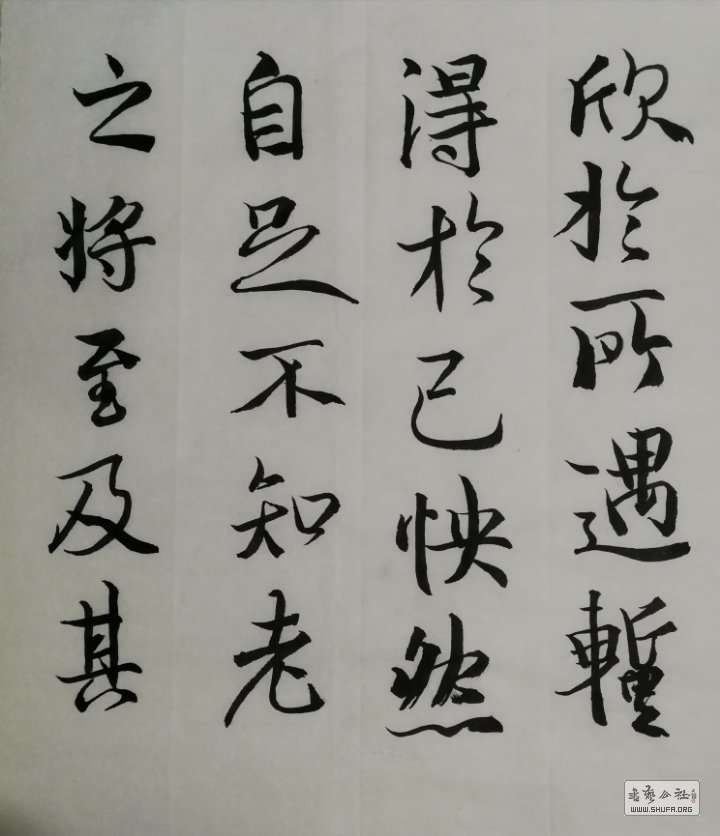 欣於所遇暫
得於己怏然
自足不知老
之將至及其
書藝公社
WWW.SHUFA.ORG